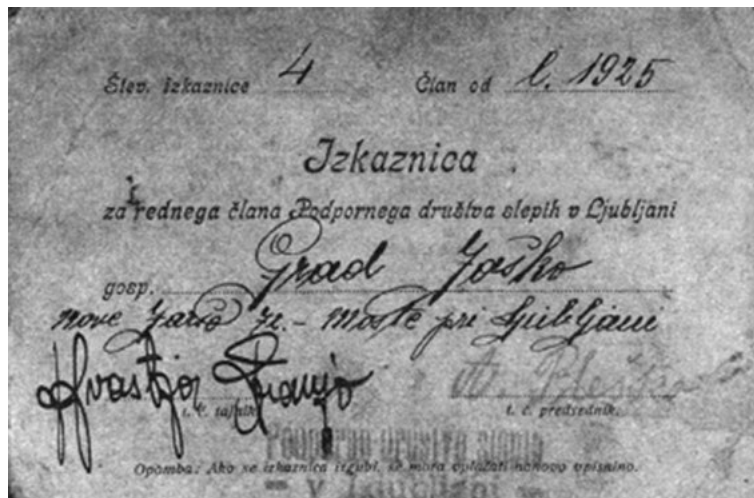 Štev. izkaznice 4 Član od l. 1925
Izkaznica
za rednega člana Podpornega društva slepih v Ljubljani
gosp. Grad Joško
Nove Jarše - Moste pri Ljubljani
Hvastja Franjo
t. č. tajnik. t. č. predsednik.
Podporno društvo slepih
Opomba: Ako se izkaznica izgubi, se mora vplačati nanovo vpisnino.
v Ljubljani